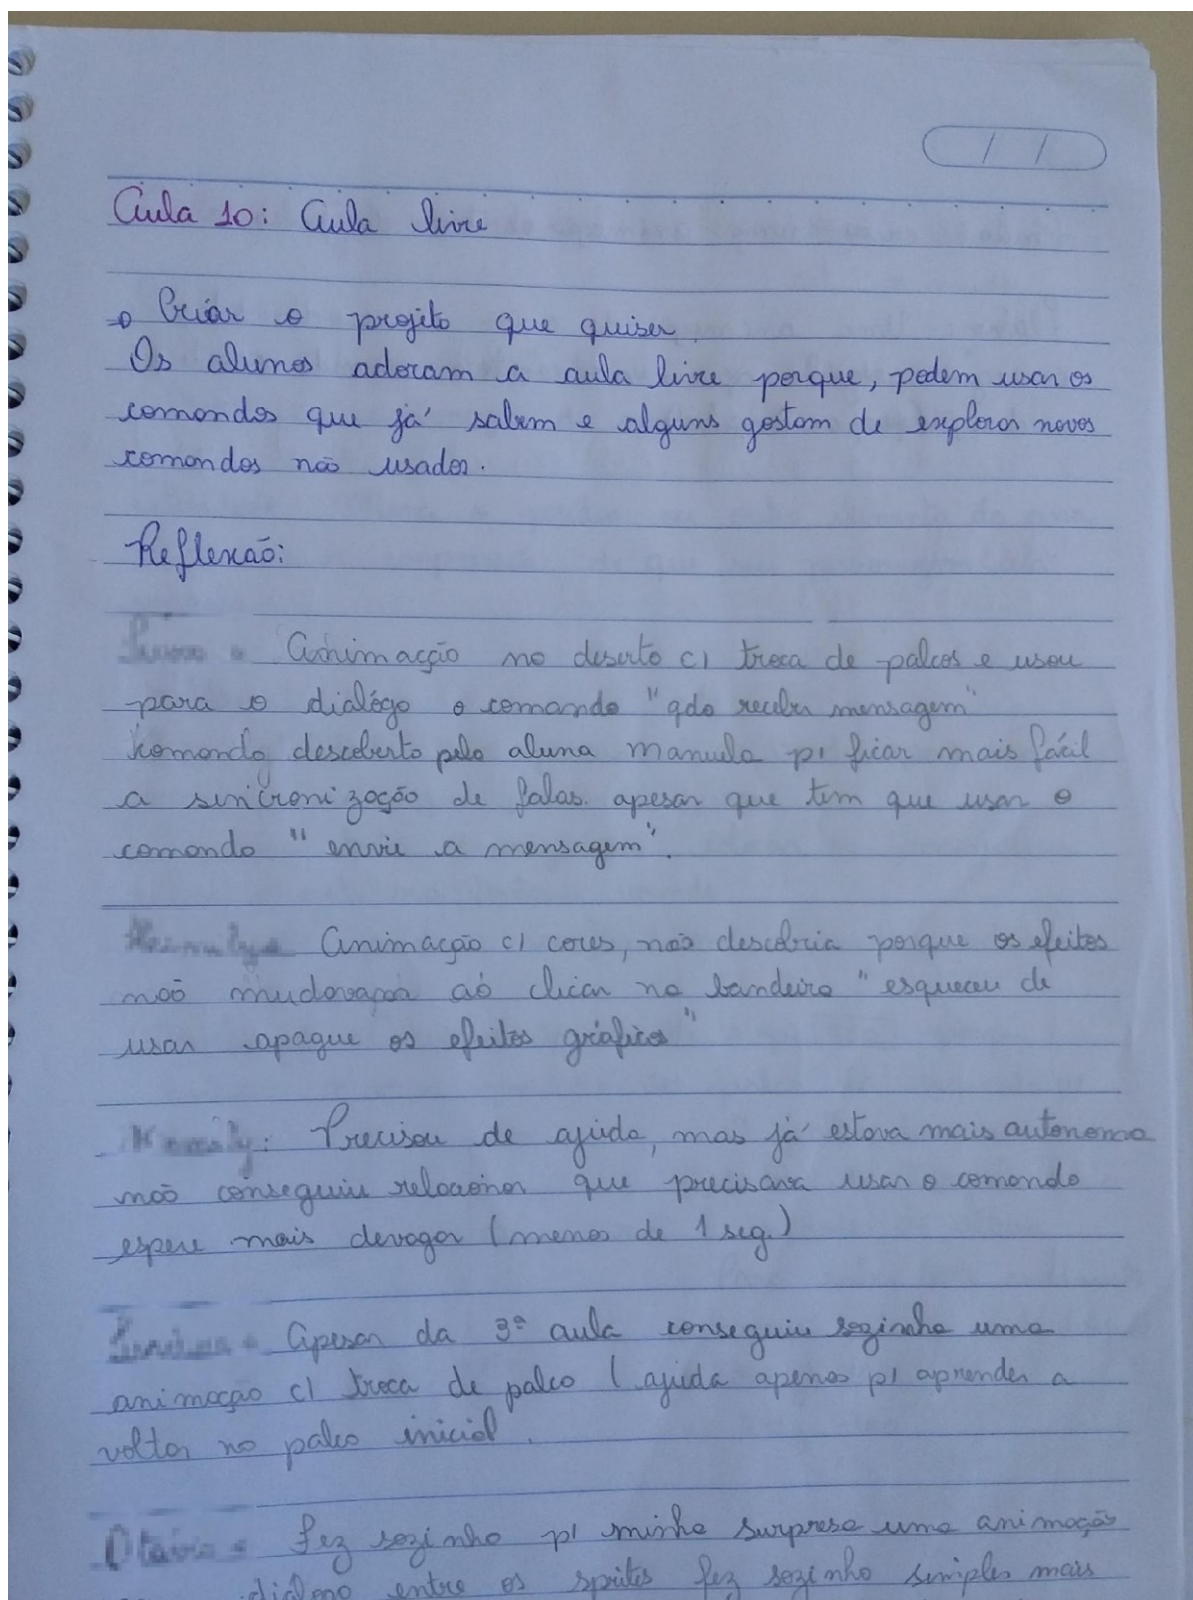 / /
Aula 10: Aula livre
Criar o projeto que quiser.
Os alunos adoram a aula livre porque, podem usar os
comandos que já sabem e alguns gostam de explorar novos
comandos não usados.
Reflexão:
Animação no deserto c/ troca de palcos e usou
para o dialógo o comando "qdo receber mensagem"
comando descoberto pela aluna manuela p/ ficar mais fácil
a sincronização de falas. apesar que tem que usar o
comando "envie a mensagem".
Animação c/ cores, não descobria porque os efeitos
não mudavam ao clicar na bandeira "esqueceu de
usar apague os efeitos gráficos"
Precisou de ajuda, mas já estava mais autonoma
não conseguiu relacionar que precisava usar o comando
espere mais devagar (menos de 1 seg.)
Apesar da 3ª aula conseguiu sozinha uma
animação c/ troca de palco (ajuda apenas p/ aprender a
voltar no palco inicial.
fez sozinho p/ minha surpresa uma animação
dialogo entre os sprites fez sozinho simples mais